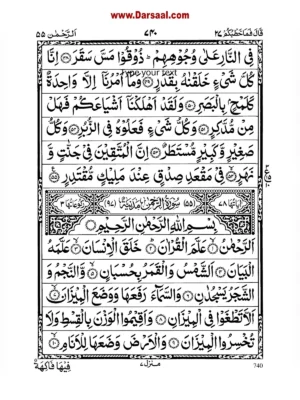 www.Darsaal.com
اَلرَّحْمٰن ۵۵ ۷۴۰ قَالَ فَمَا خَطْبُكُمْ ۲۷
فِي النَّارِ عَلٰى وُجُوْهِهِمْ ذُوْقُوْا مَسَّ سَقَرَ ۝ اِنَّا
Type your text
كُلَّ شَىْءٍ خَلَقْنٰهُ بِقَدَرٍ ۝ وَمَاۤ اَمْرُنَاۤ اِلَّا وَاحِدَةٌ
كَلَمْحٍۭ بِالْبَصَرِ ۝ وَلَقَدْ اَهْلَكْنَاۤ اَشْيَاعَكُمْ فَهَلْ
مِنْ مُّدَّكِرٍ ۝ وَكُلُّ شَىْءٍ فَعَلُوْهُ فِي الزُّبُرِ ۝ وَكُلُّ
صَغِيْرٍ وَّكَبِيْرٍ مُّسْتَطَرٌ ۝ اِنَّ الْمُتَّقِيْنَ فِيْ جَنّٰتٍ وَّ
نَهَرٍ ۝ فِيْ مَقْعَدِ صِدْقٍ عِنْدَ مَلِيْكٍ مُّقْتَدِرٍ ۝
اٰيَاتُهَا ۷۸ (۵۵) سُوْرَةُ الرَّحْمٰنِ مَدَنِيَّةٌ (۹۷) رُكُوْعَاتُهَا ۳
بِسْمِ اللّٰهِ الرَّحْمٰنِ الرَّحِيْمِ
اَلرَّحْمٰنُ ۝ عَلَّمَ الْقُرْاٰنَ ۝ خَلَقَ الْاِنْسَانَ ۝ عَلَّمَهُ
الْبَيَانَ ۝ اَلشَّمْسُ وَالْقَمَرُ بِحُسْبَانٍ ۝ وَّالنَّجْمُ وَ
الشَّجَرُ يَسْجُدٰنِ ۝ وَالسَّمَآءَ رَفَعَهَا وَوَضَعَ الْمِيْزَانَ ۝
اَلَّا تَطْغَوْا فِي الْمِيْزَانِ ۝ وَاَقِيْمُوا الْوَزْنَ بِالْقِسْطِ وَلَا
تُخْسِرُوا الْمِيْزَانَ ۝ وَالْاَرْضَ وَضَعَهَا لِلْاَنَامِ ۝
فِيْهَا فَاكِهَةٌ منزل ۷ 740